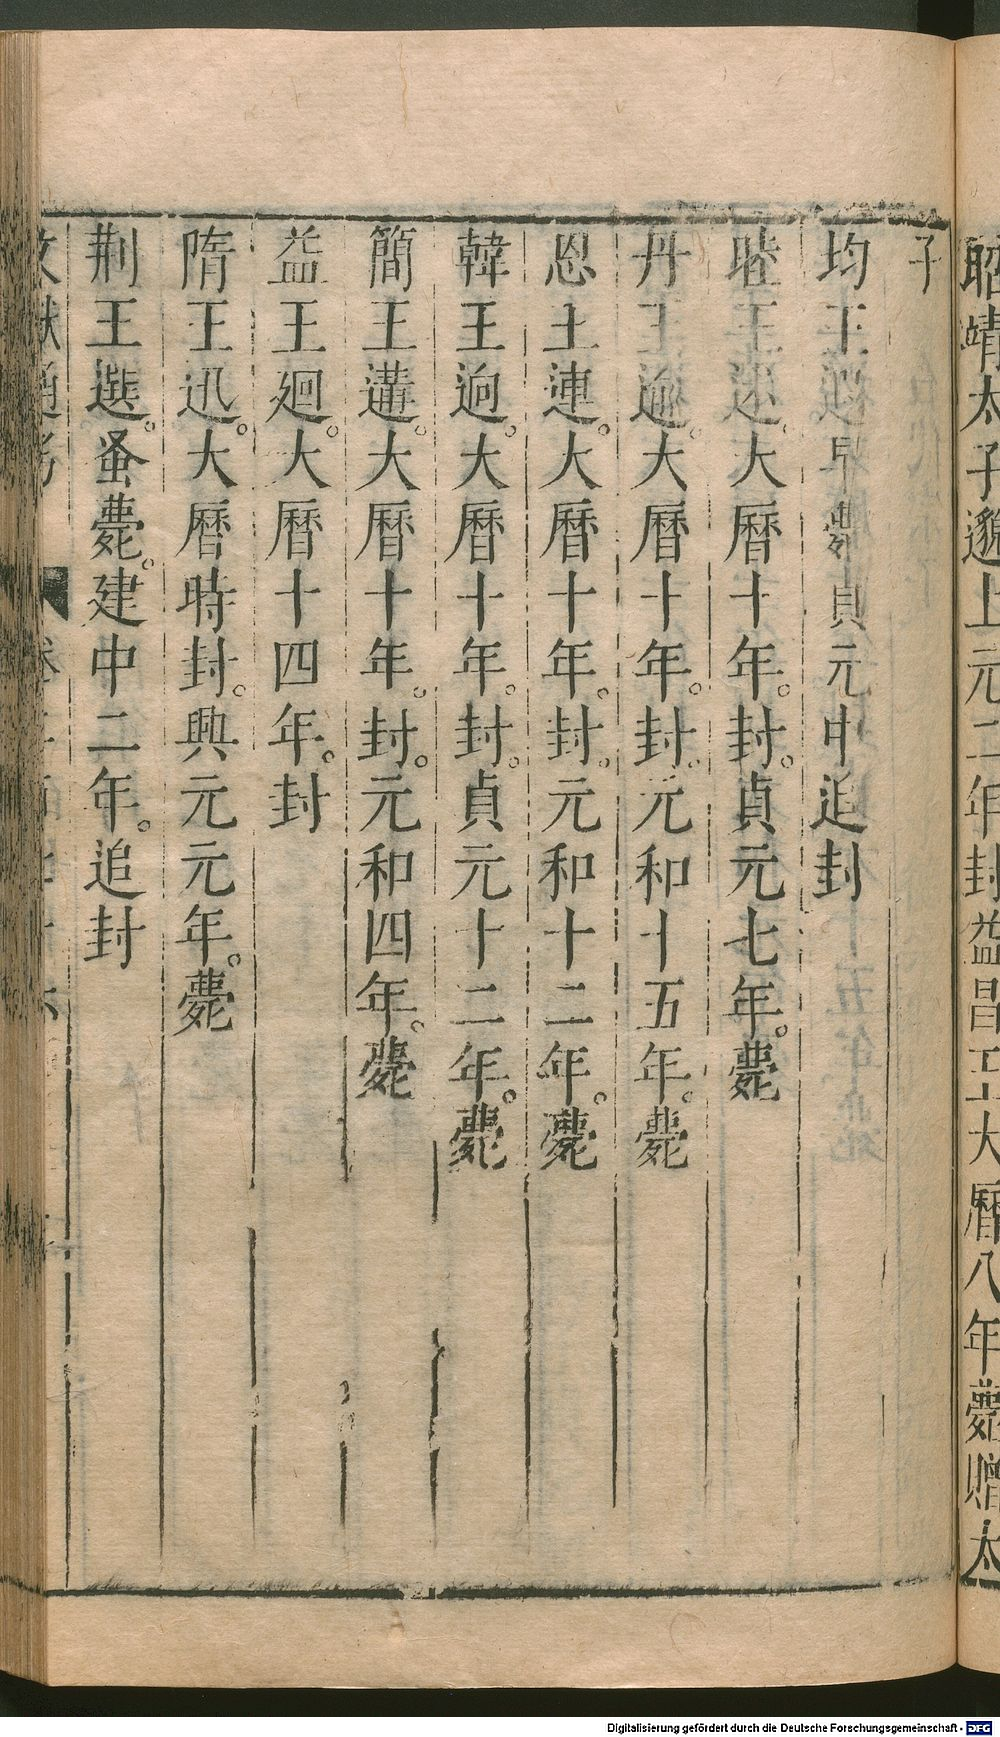 昭靖太子邈上元二年封益昌王大曆八年薨贈太
子
均王遐早薨貞元中追封
睦王述。大曆十年。封。貞元七年。薨
丹王逾。大曆十年。封。元和十五年。薨
恩王連。大曆十年。封。元和十二年。薨
韓王迥。大曆十年。封。貞元十二年。薨
簡王遘。大曆十年。封。元和四年。薨
益王迴。大曆十四年。封
隋王迅。大曆時封。興元元年。薨
荆王選。蚤薨。建中二年。追封
文獻通考 卷二百
Digitalisierung gefördert durch die Deutsche Forschungsgemeinschaft - DFG